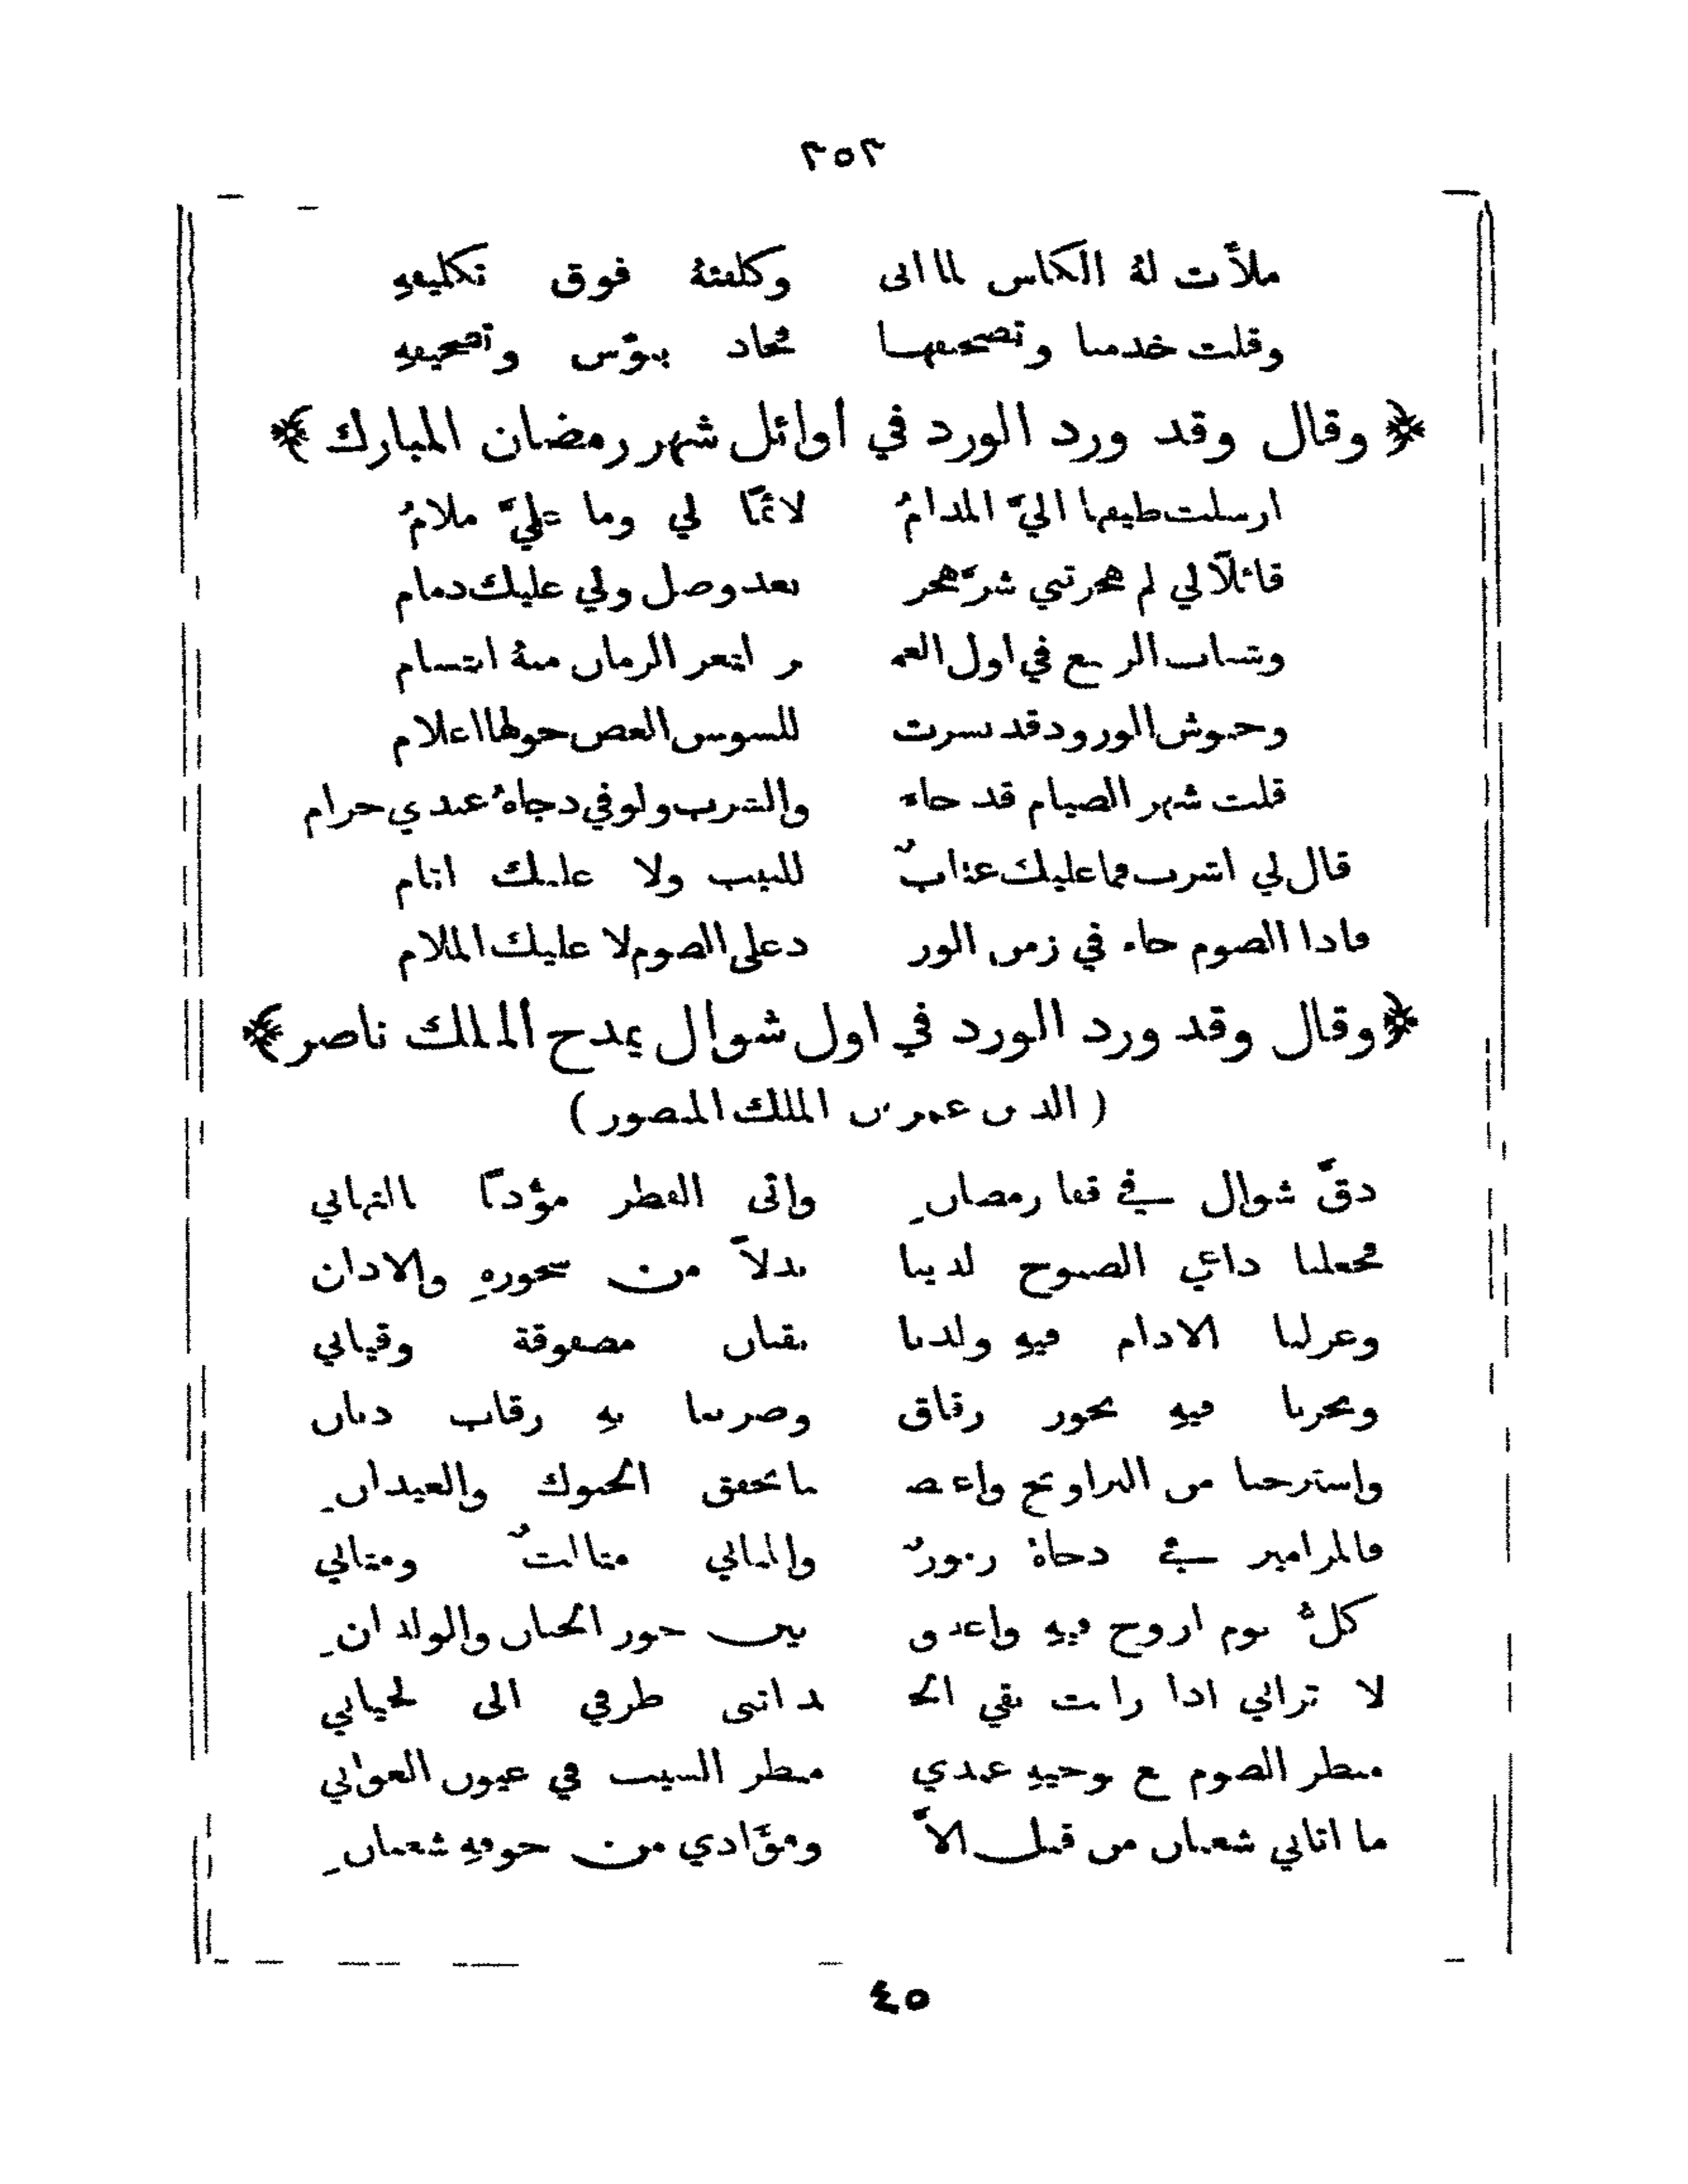 ٣٥٣
ملأت لهُ الكاس لما اتى وكلفتهُ فوق تكليفهِ
وقلت خدمنا وتصحيفها فجاد ببؤس وتصحيفهِ
﴿ وقال وقد ورد الورد في أوائل شهر رمضان المبارك ﴾
ارسلت طيفها اليَّ المدامُ لائمًا لي وما عليَّ ملامُ
قائلاً لي لم هجرتني شرَّ هجر بعد وصل ولي عليك ذمام
وشباب الربيع في اول العمـ ـر لثغر الزمان منهُ ابتسام
وجيوش الورود قد نشرت للسوسن الغض حولها اعلام
قلت شهر الصيام قد جاء والشرب ولو في دجاهُ عندي حرام
قال لي اشرب فما عليك عذابٌ للبيب ولا عليك اثام
فاذا الصوم جاء في زمن الور د على الصوم لا عليك الملام
﴿ وقال وقد ورد الورد في اول شوال يمدح ألملك ناصر ﴾
( الدين عمر بن الملك المنصور )
دقَّ شوال في قفا رمضانِ واتى الفطر مؤذنًا بالتهاني
فجعلنا داعي الصبوح لدينا بدلاً من سحورهِ والاذان
وعزلنا الادام فيهِ ولذنا بقنان مصفوفة وقياني
ونحرنا فيهِ نحور زقاق وضربنا بهِ رقاب دنان
واسترحنا من التراويح واعتضـ ـنا بخفق الجنوك والعيدانِ
فالمزامير في دجاهُ زبورٌ والمثاني مثالثٌ ومثاني
كلُّ يوم اروح فيهِ واغدو بين حور الجنان والولدانِ
لا تراني اذا رايت نقي الخـ ـد اثني طرفي الى لحياني
منظر الصوم مع توخيهِ عندي منظر الشيب في عيون الغواني
ما اتاني شعبان من قبل الاَّ وفؤَادي من خوفهِ شعبانِ
٤٥